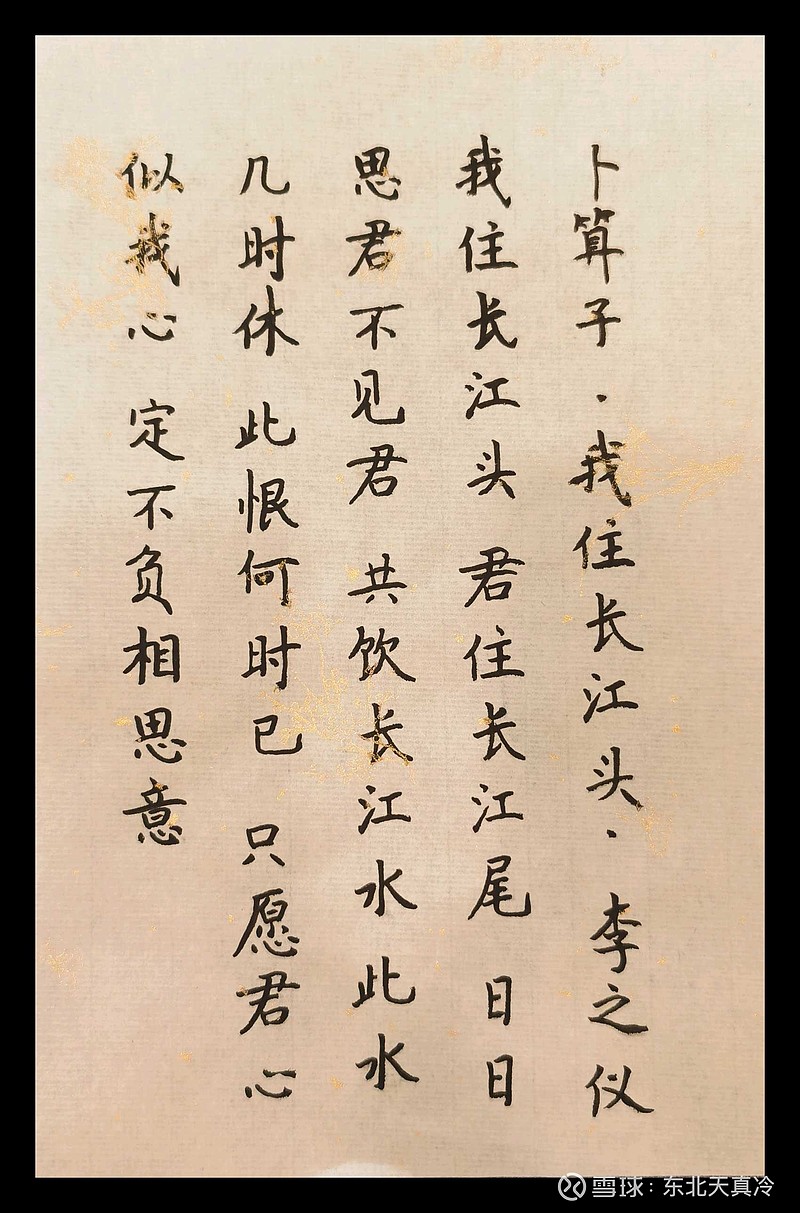 卜算子·我住长江头·李之仪
我住长江头 君住长江尾 日日
思君不见君 共饮长江水 此水
几时休 此恨何时已 只愿君心
似我心 定不负相思意
雪球：东北天真冷